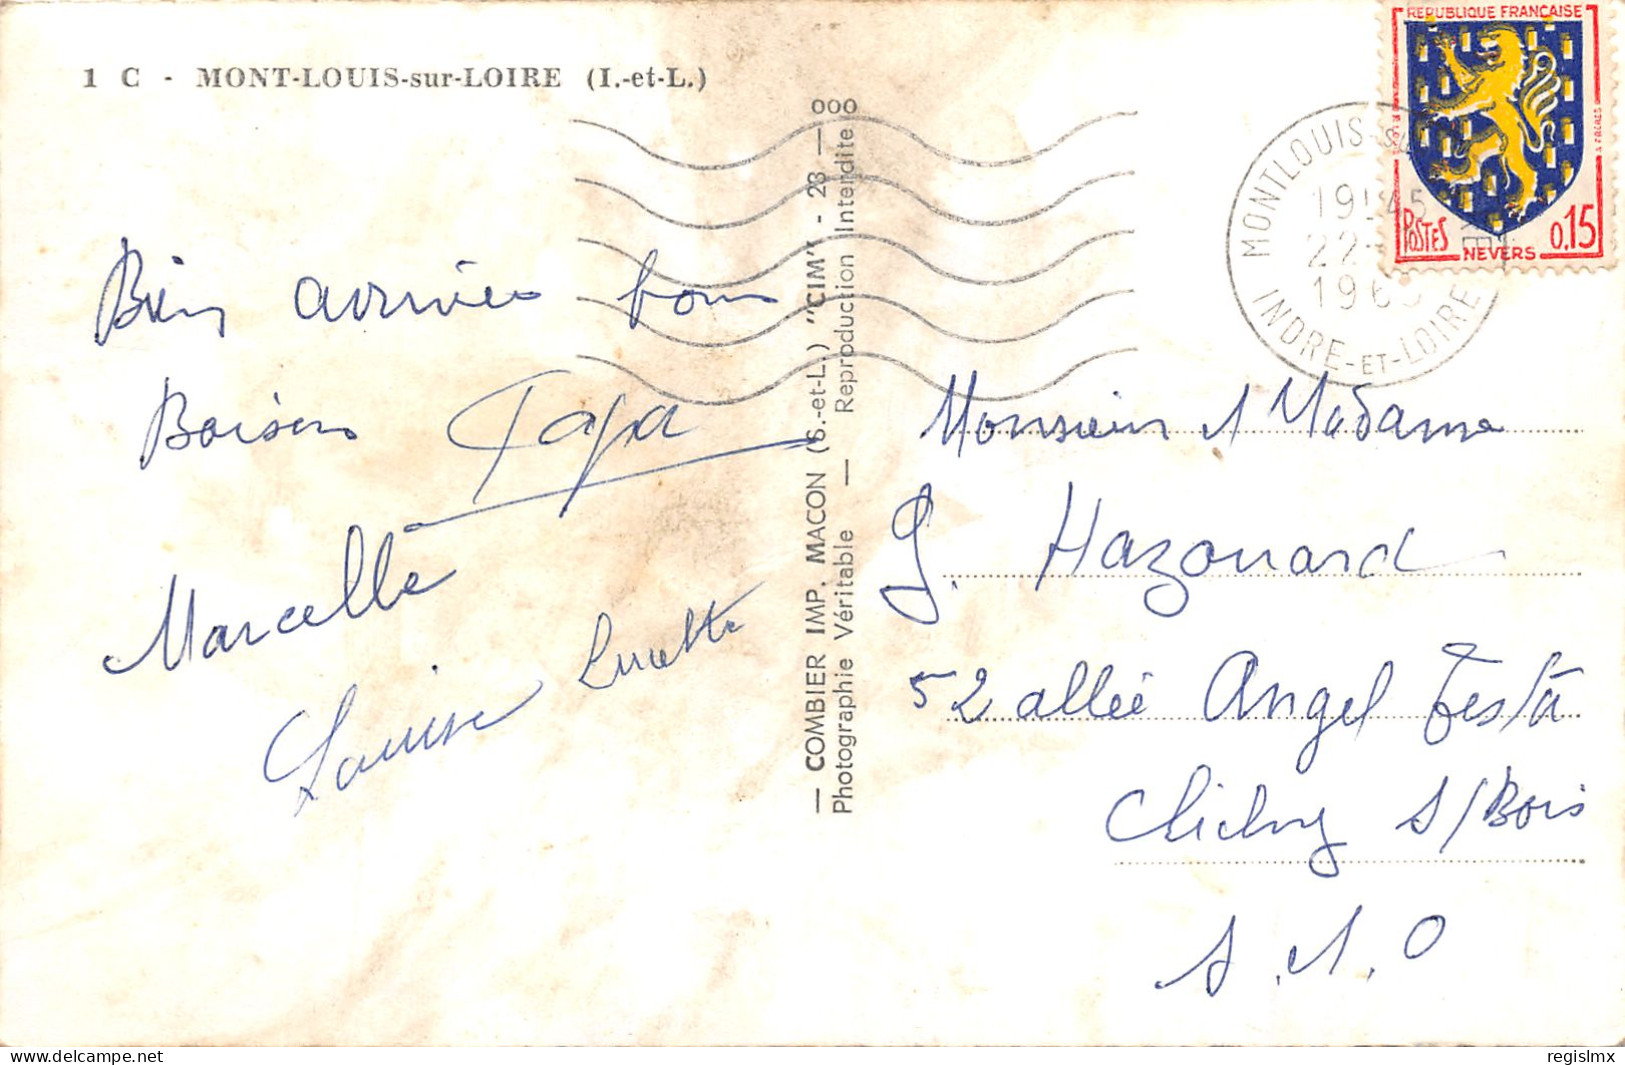 1 C - MONT-LOUIS-sur-LOIRE (I.-et-L.)
Bien arrivés bons
Baisers Papa
Marcelle
Louise Lucette
— COMBIER IMP. MACON (S.-et-L.) "CIM" - 23 — 000
Photographie Véritable — Reproduction Interdite
REPUBLIQUE FRANÇAISE
POSTES NEVERS 0.15
MONTLOUIS-SU
1945
22-
196
INDRE-ET-LOIRE
Monsieur et Madame
G. Hazouard
52 allée Angel Testa
Clichy s/Bois
S.et.O
delcampe.net
regislmx